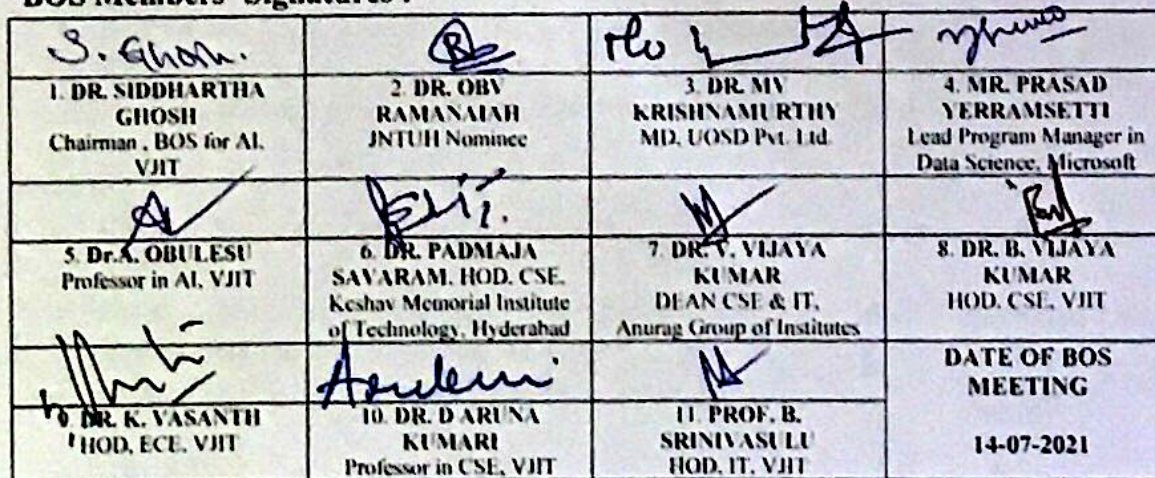 BOS Members' Signatures :
S. Ghosh.
1. DR. SIDDHARTHA
GHOSH
Chairman , BOS for AI,
VJIT
2. DR. OBV
RAMANAIAH
JNTUH Nominee
3. DR. MV
KRISHNAMURTHY
MD, UOSD Pvt. Ltd.
4. MR. PRASAD
YERRAMSETTI
Lead Program Manager in
Data Science, Microsoft
5. Dr.A. OBULESU
Professor in AI, VJIT
6. DR. PADMAJA
SAVARAM, HOD, CSE,
Keshav Memorial Institute
of Technology, Hyderabad
7. DR. V. VIJAYA
KUMAR
DEAN CSE & IT,
Anurag Group of Institutes
8. DR. B. VIJAYA
KUMAR
HOD, CSE, VJIT
9. DR. K. VASANTH
HOD, ECE, VJIT
10. DR. D ARUNA
KUMARI
Professor in CSE, VJIT
11. PROF. B.
SRINIVASULU
HOD, IT, VJIT
DATE OF BOS
MEETING
14-07-2021